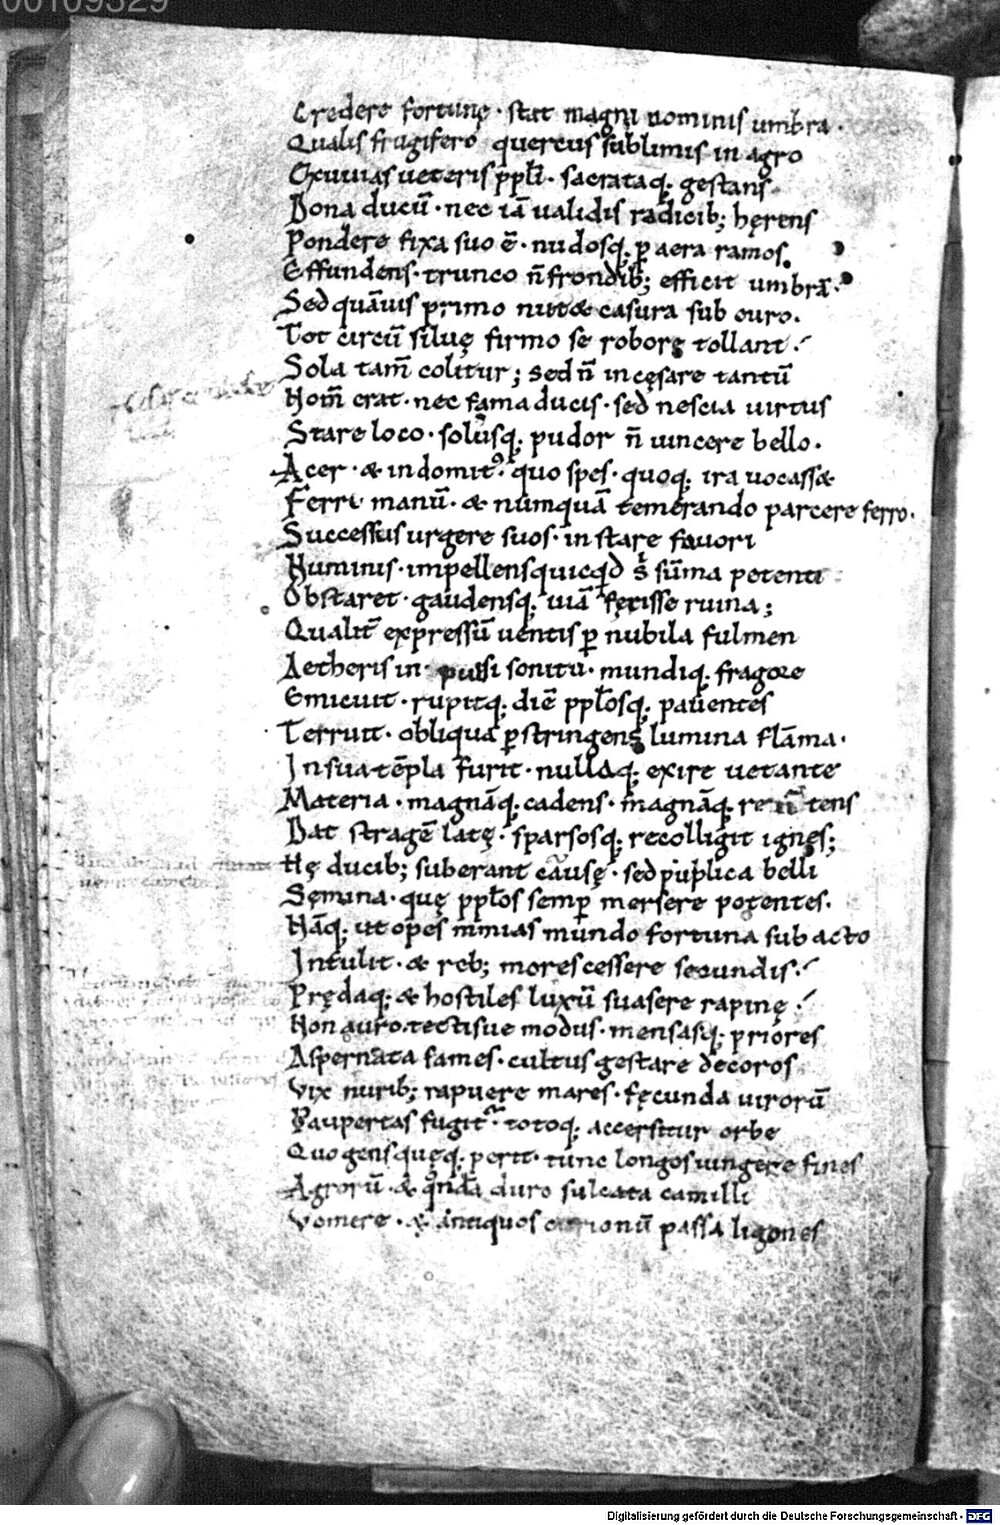 00109329
Credere fortunę · stat magni nominis umbra ·
Qualis frugifero quercus sublimis in agro
Exuuias ueteris pp̄li · sacrataq; gestans
Dona ducū · nec iā ualidis radicib; hęrens
Pondere fixa suo ē · nudosq; p̄ aera ramos
Effundens · trunco ñ frondib; efficit umbrā ·
Sed quāuis primo nut& casura sub euro.
Tot circū siluę firmo se robore tollant ·
Sola tam̄ colitur; sed ñ in cęsare tantū
Nom̄ erat · nec fama ducis · sed nescia uirtus
Stare loco · solusq; pudor ñ uincere bello.
Acer · & indomit᾽ quo spes · quoq; ira uocass&
Ferre manū · & numquā temerando parcere ferro.
Successus urgere suos · instare fauori
Numinis · impellens quicqd s̄ sūma potenti
Obstaret · gaudensq; uiā fęcisse ruina;
Qualit̄ expressū uentis p̄ nubila fulmen
Aetheris in pulsi sonitu · mundiq; fragore
Emicuit · rupitq; diē pp̄losq; pauentes
Terruit · obliqua p̄stringens lumina flāma ·
In sua tēpla furit · nullaq; exire uetante
Materia · magnāq; cadens · magnāq; reuertens
Dat stragē latę · sparsosq; recolligit ignes;
Hę ducib; suberant causę · sed publica belli
Sęmina · quę pp̄los semp̄ mersere potentes.
Nāq; ut opes nimias mundo fortuna subacto
Intulit · & reb; mores cessere secundis ·
Prędaq; & hostiles luxū suasere rapinę ·
Non auro · tectisue modus · mensasq; priores
Aspernata fames · cultus gestare decoros
Vix nurib; rapuere mares · fęcunda uirorū
Paupertas fugit᾽ · totoq; accersitur orbe
Quo gens quęq; perit · tunc longos iungere fines
Agrorū · & qndā duro sulcata camilli
Vomere · & antiquos curionū passa ligones
Digitalisierung gefördert durch die Deutsche Forschungsgemeinschaft - DFG